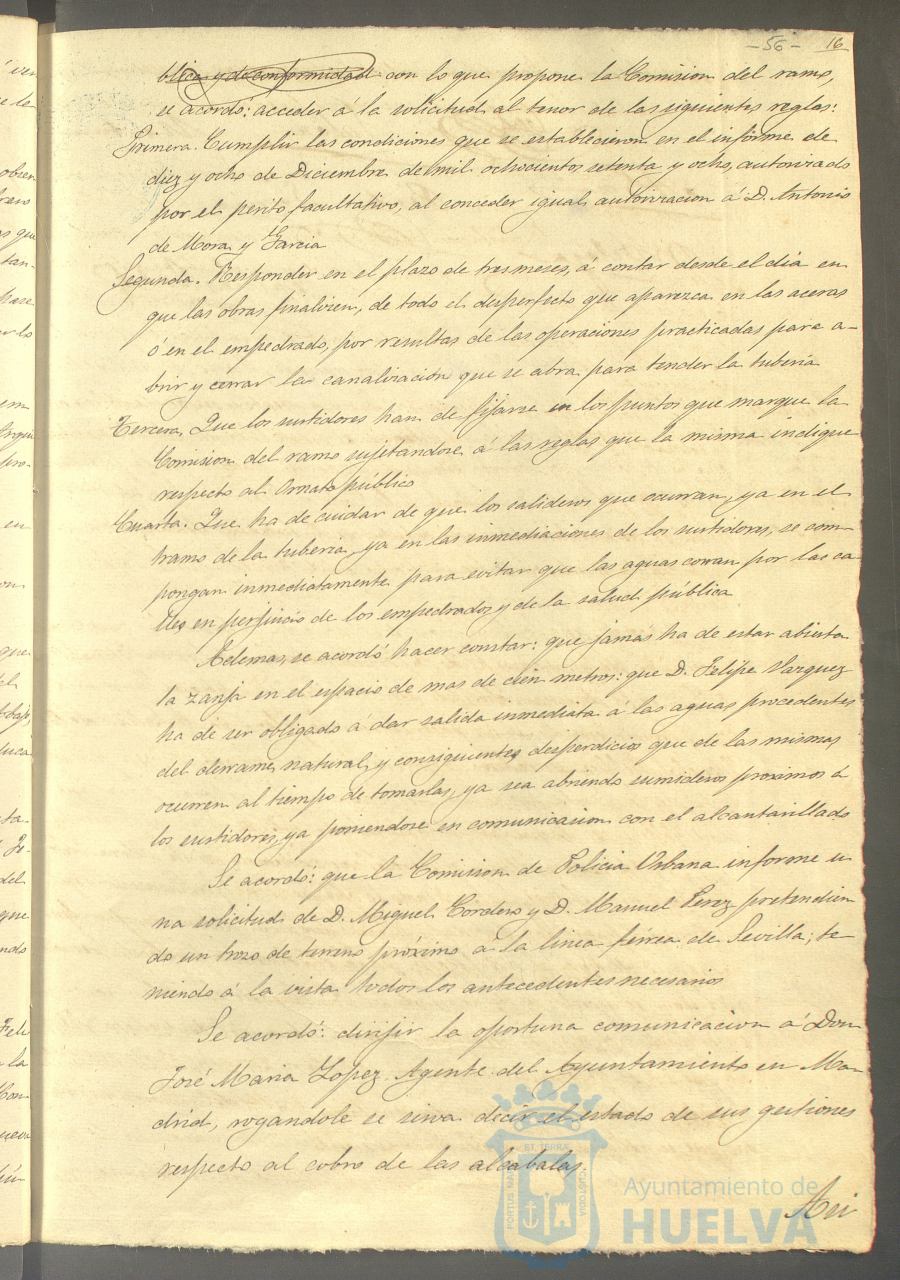 - 56 - 16
blica y de conformidad con lo que propone la Comision del ramo,
se acordó: acceder á la solicitud al tenor de las siguientes reglas:
Primera. Cumplir las condiciones que se establecieron en el informe de
diez y ocho de Diciembre de mil ochocientos setenta y ocho, autorizado
por el perito facultativo, al conceder igual autorizacion á D. Antonio
de Mora y Garcia
Segunda. Responder en el plazo de tres meses, á contar desde el dia en
que las obras finalicen, de todo el desperfecto que aparezca en las aceras
ó en el empedrado, por resultas de las operaciones practicadas para a-
brir y cerrar la canalizacion que se abra para tender la tuberia
Tercera. Que los surtidores han de fijarse en los puntos que marque la
Comision del ramo sujetandose á las reglas que la misma indique
respecto al Ornato público
Cuarta. Que ha de cuidar de que los salideros que ocurran, ya en el
tramo de la tuberia, ya en las inmediaciones de los surtidores, se com-
pongan inmediatamente para evitar que las aguas corran por las ca-
lles en perjuicio de los empedrados y de la salud pública
Ademas, se acordó hacer constar: que jamás ha de estar abierta
la zanja en el espacio de mas de cien metros: que D. Felipe Vazquez
ha de ser obligado a dar salida inmediata á las aguas procedentes
del derrame natural y consiguientes desperdicios que de las mismas
ocurren al tiempo de tomarlas, ya sea abriendo sumideros proximos á
los surtidores, ya poniendose en comunicacion con el alcantarillado
Se acordó: que la Comision de Policia Urbana informe u
na solicitud de D. Miguel Cordero y D. Manuel Perez pretendien
do un trozo de terreno próximo a la linea férrea de Sevilla; te
niendo á la vista todos los antecedentes necesarios
Se acordó: dirijir la oportuna comunicacion á Don
José Maria Lopez Agente del Ayuntamiento en Ma-
drid, rogandole se sirva decir el estado de sus gestiones
respecto al cobro de las alcabalas.
PORTUS MARIS ET TERRAE CUSTODIA
Ayuntamiento de
HUELVA